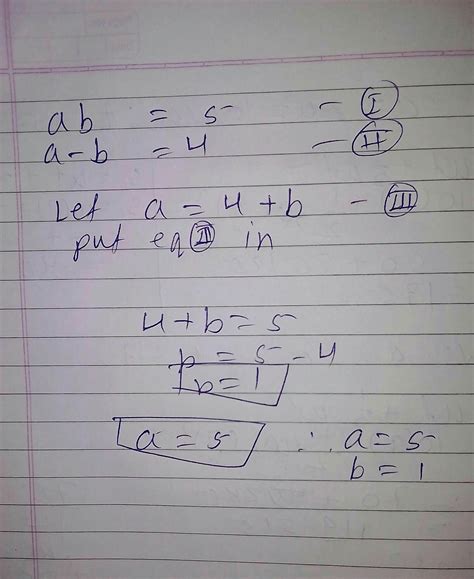 ab = 5 - I
a-b = 4 - II
Let a = 4 + b - III
put eq III in
4+b = 5
b = 5 - 4
b = 1
a = 5 ∴ a = 5
b = 1